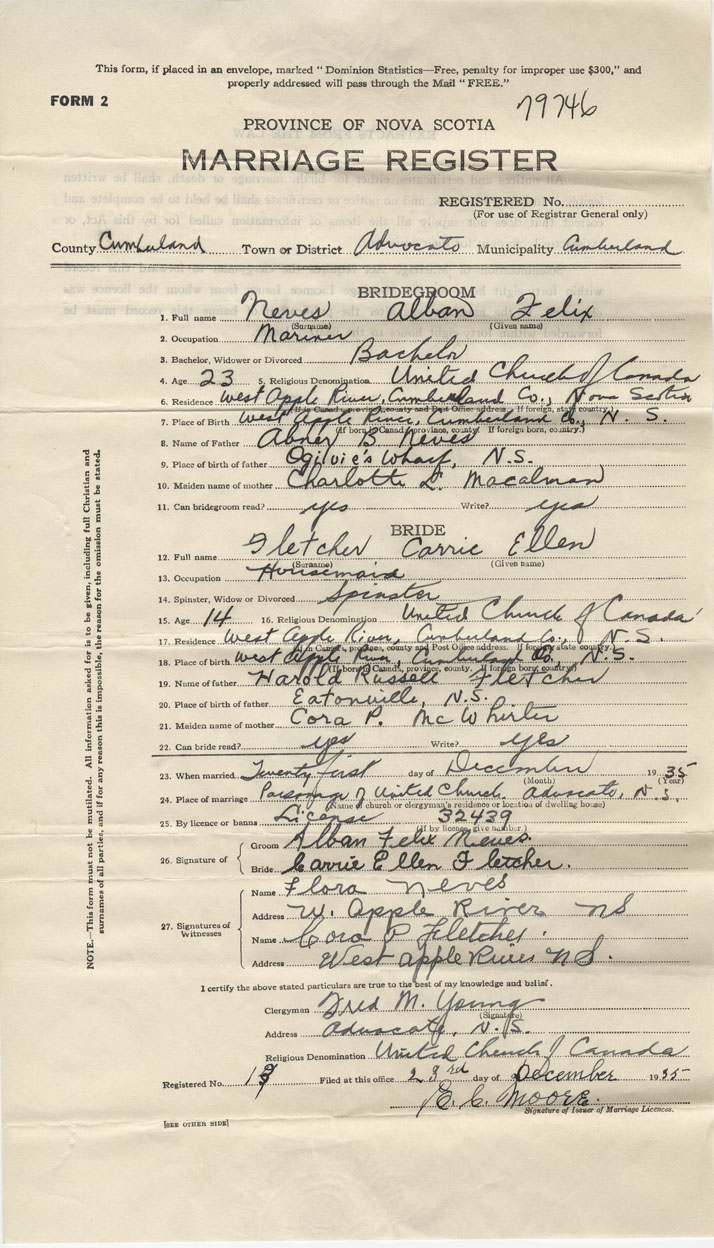 This form, if placed in an envelope, marked "Dominion Statistics—Free, penalty for improper use $300," and
properly addressed will pass through the Mail "FREE."
FORM 2
79746
PROVINCE OF NOVA SCOTIA
MARRIAGE REGISTER
REGISTERED No.
(For use of Registrar General only)
County Cumberland Town or District Advocate Municipality Cumberland
BRIDEGROOM
1. Full name Neves Alban Felix
(Surname) (Given name)
2. Occupation Mariner
3. Bachelor, Widower or Divorced Bachelor
4. Age 23 5. Religious Denomination United Church of Canada
6. Residence West Apple River, Cumberland Co., Nova Scotia
(If in Canada, province, county and Post Office address. If foreign, state country.)
7. Place of Birth West Apple River, Cumberland Co., N. S.
(If born in Canada, province, county. If foreign born, country.)
8. Name of Father Abner B. Neves
9. Place of birth of father Ogilvie's Wharf, N.S.
10. Maiden name of mother Charlotte L. Macalman
11. Can bridegroom read? yes Write? yes
BRIDE
12. Full name Fletcher Carrie Ellen
(Surname) (Given name)
13. Occupation Housemaid
14. Spinster, Widow or Divorced Spinster
15. Age 14 16. Religious Denomination United Church of Canada
17. Residence West Apple River, Cumberland Co., N.S.
(If in Canada, province, county and Post Office address. If foreign state country.)
18. Place of birth West Apple River, Cumberland Co., N.S.
(If born in Canada, province, county. If foreign born, country)
19. Name of father Harold Russell Fletcher
20. Place of birth of father Eatonville, N.S.
21. Maiden name of mother Cora P. McWhirter
22. Can bride read? yes Write? yes
23. When married Twenty first day of December 1935
(Month) (Year)
24. Place of marriage Parsonage of United Church Advocate, N.S.
(Name of church or clergyman's residence or location of dwelling house)
25. By licence or banns License 32439
(If by licence, give number.)
26. Signature of
Groom Alban Felix Neves
Bride Carrie Ellen Fletcher.
27. Signatures of Witnesses
Name Flora Neves
Address W. Apple River NS
Name Cora P Fletcher
Address West apple River N S.
I certify the above stated particulars are true to the best of my knowledge and belief.
Clergyman Fred M. Young
(Signature)
Address Advocate, N.S.
Religious Denomination United Church of Canada
Registered No. Filed at this office 23rd day of December 1935
E. C. Moore.
Signature of Issuer of Marriage Licences.
[SEE OTHER SIDE]
NOTE.—This form must not be mutilated. All information asked for is to be given, including full Christian and
surnames of all parties, and if for any reason this is impossible, the reason for the omission must be stated.